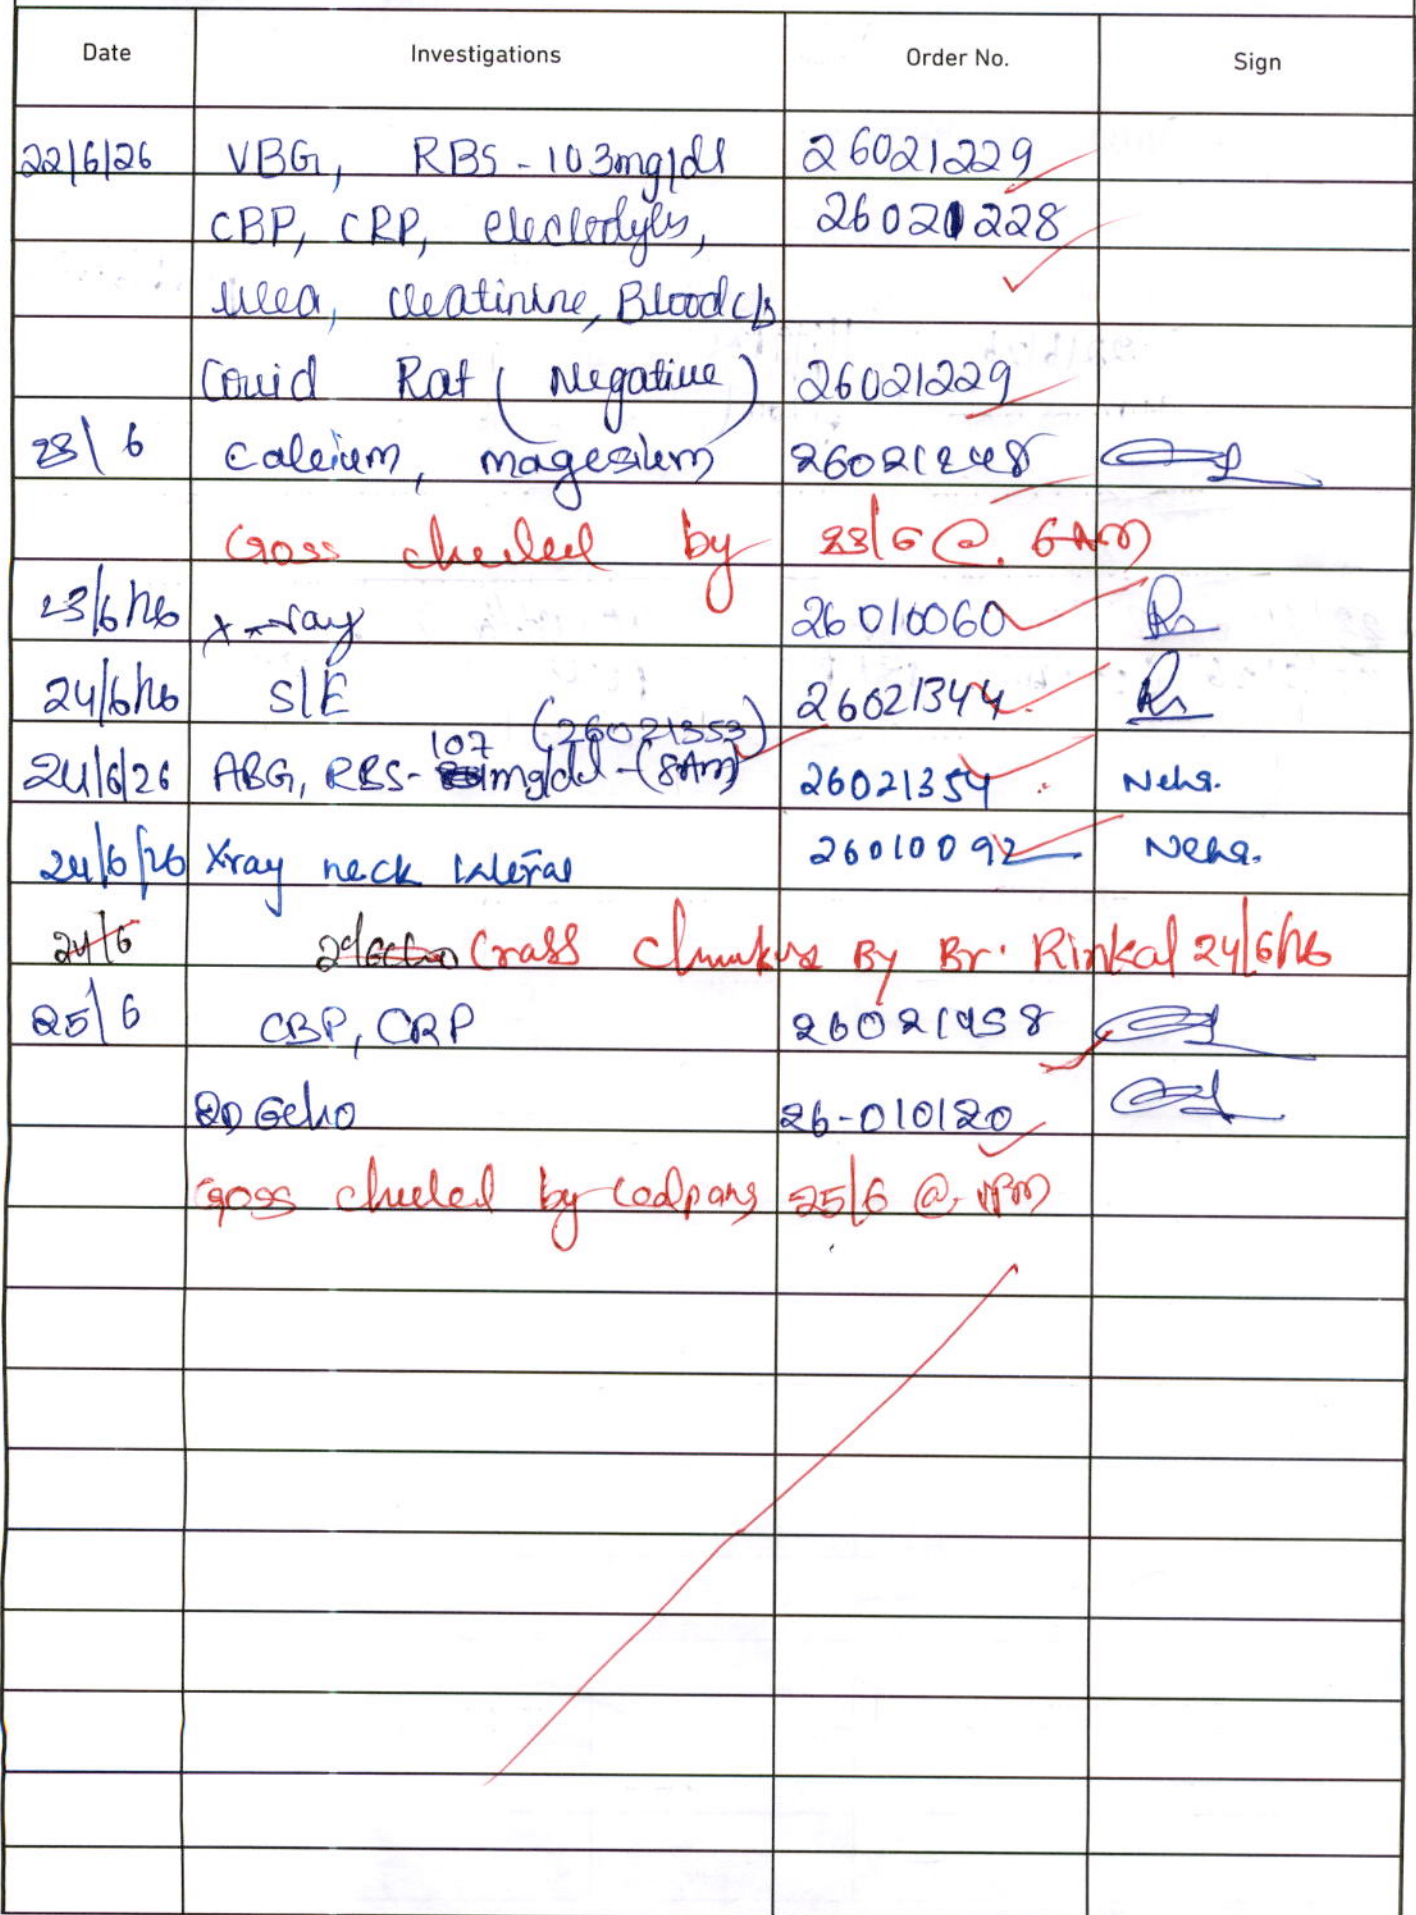 Date Investigations Order No. Sign
22/6/26 VBG, RBS - 103mg/dl 26021229
CBP, CRP, electrolytes, 26021228
urea, creatinine, Blood c/s
Covid Rat (Negative) 26021229
23/6 Calcium, magesium 26021248
Cross checked by 23/6 @ 6AM
23/6/26 X-ray 26010060
24/6/26 S/E 26021344
(26021353)
107
24/6/26 ABG, RBS- mg/dl -(8AM) 26021354 Neha.
24/6/26 Xray neck lateral 26010092 Neha.
24/6 2decho Cross By Br. Rinkal 24/6/26
25/6 CBP, CRP 26021458
2D Echo 26-010120
Cross checked by 25/6 @